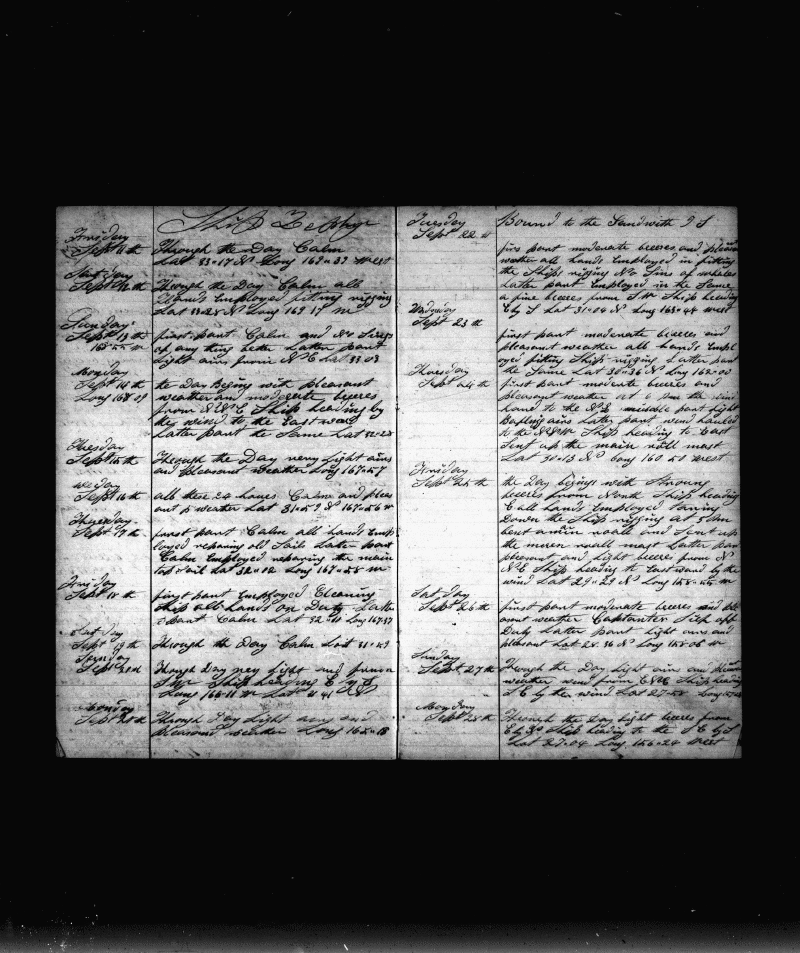 Ship Zephyr
Friday
Sept 11 th Through the Day Calm
Lat 33=17 N Long 169=39 West
Sat day
Sept 12 th Through the Day Calm all
Hands Employed fiting rigging
Lat 33=28 N Long 169 17 W
Sunday
Sept 13 th first part Calm and No Sines
of any thing Latter part
Light airs from N E Lat 33 03
Monday
Sept 14 th the Day Begins with pleasant
weather and moderate beeres
from NNE Ship heading by
they wind to the East ward
Latter part the Same Lat 32=28
Tuesday
Sept 15 th Through the Day very Light airs
and Pleasant Weather Long 167=57
We day
Sept 16 th all these 24 hours Calm and pleas
ant weather Lat 31=59 N 167=56 W
Thursday
Sept 17 th first part Calm all hands Emp
loyed reparing old Sails Later part
Calm Employed reparing the main
top Sail Lat 32=02 Long 167=58 W
Friday
Sept 18 th first part Employed Cleaning
Ship all hands on Duty Latter
part Calm Lat 32=11 Long 167=37
Sat day
Sept 19 th Through the Day Calm Lat 31=59
Sunday
Though Day very Light and
Ship heading E by S
Monday
Through Day Light airs and
pleasant weather Long 165=18
Tuesday
Sept 22 Bound to the Sandwith I S
firs part moderate beeres and pleasant
weather all hands Employed in fitting
the Ships rigging No Sins of whales
Latter part Employed in the Same
a fine beeres from S W Ship heading
E by S Lat 31=04 N Long 163=44 West
Wedsday
Sept 23 th
first part moderate beeres and
pleasant weather all hands Empl
oyed fiting Ships rigging Latter part
the Same Lat 30=36 N Long 162=00
Thursday
Sept 24 th first part moderate beeres and
pleasant weather at 6 Am the wind
to the NE middle part Light
airs Latter part wind hauled
to the NNW Ship heading to East
Sent up the main mast
Lat 30=13 N Long 160 51 West
Friday
Sept 25 th the Day begings with Strong
beeres from North Ship heading
E all hands Employed
Down the Ships rigging at 5 Am
bent a and Sent up
the mast Latter part
pleasant and Light beeres from N
NE Ship heading to East ward by the
wind Lat 29=29 N Long 158=55 W
Sat day
Sept 26 th first part moderate beeres and ple
asant weather
Duty Latter part Light airs and
pleasant Lat 28=36 N Long 158=06 W
Sunday
Sept 27 th Through the Day Light airs and
weather wind from Ship heading
S E by the wind Lat 27=58
Monday
Sept 28 th Through the Day Light beeres from
E by N Ship heading to the S E by S
Lat 27=04 Long 156=24 West